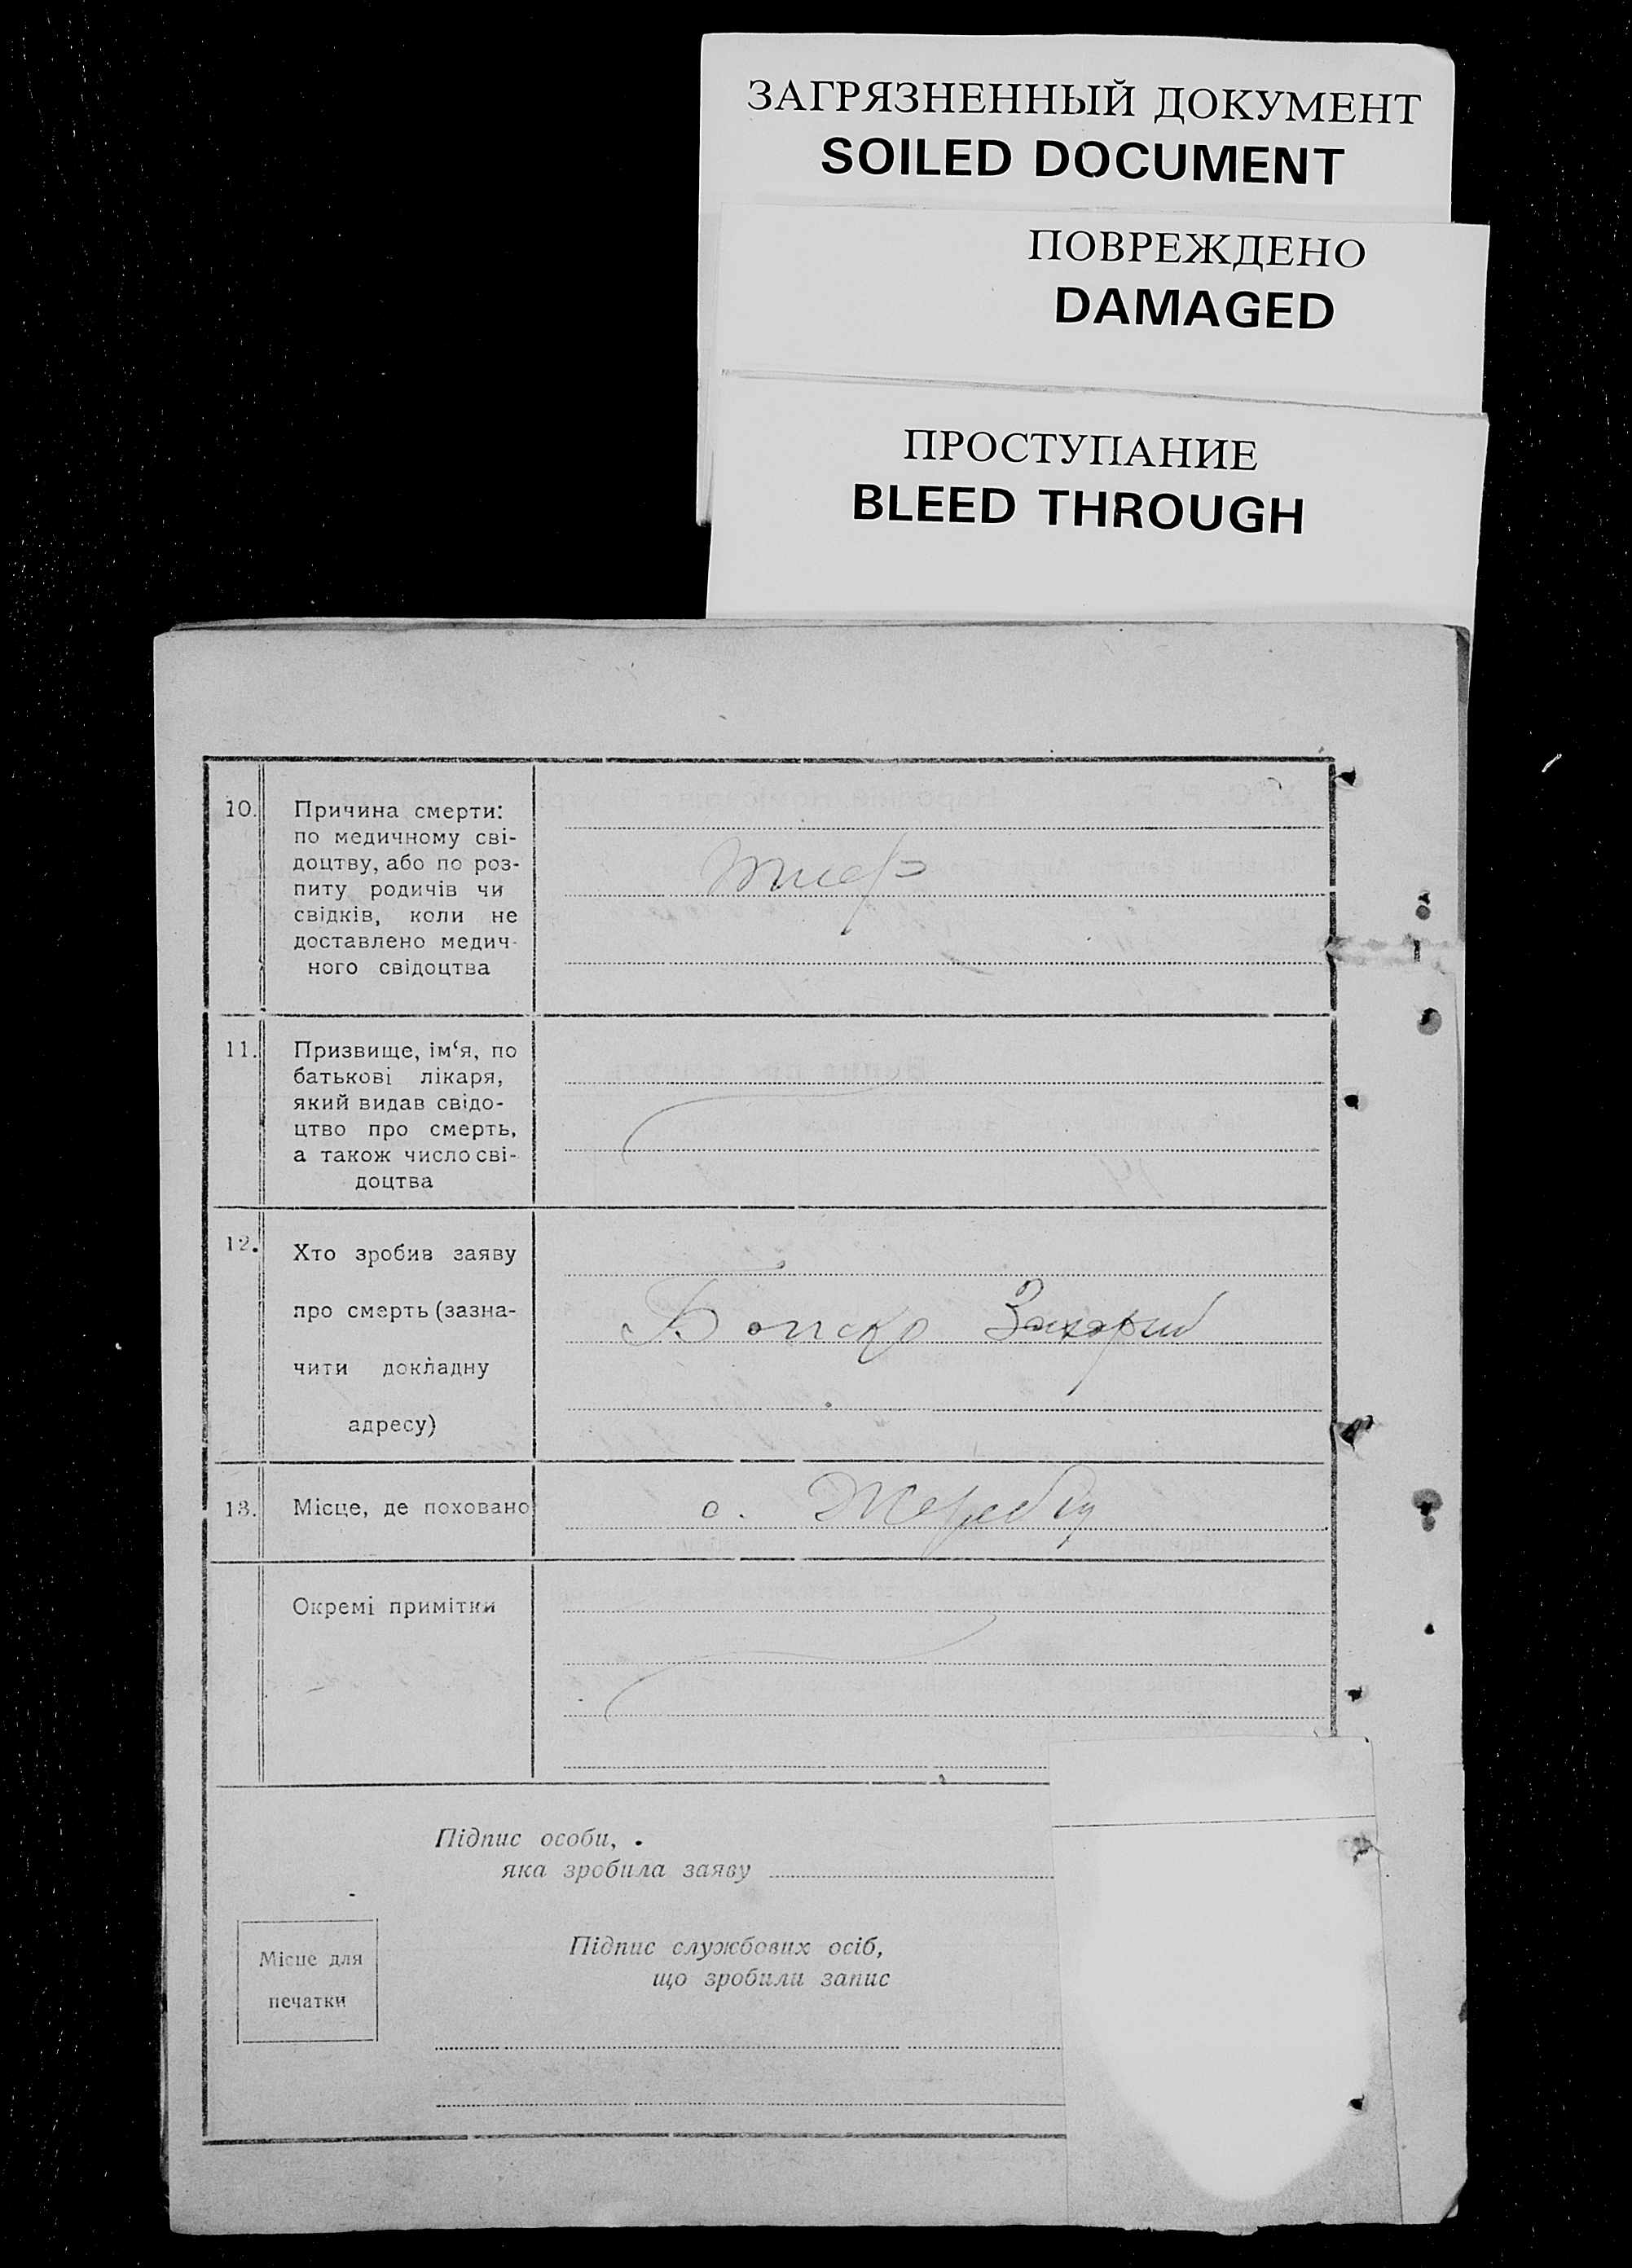 ЗАГРЯЗНЕННЫЙ ДОКУМЕНТ
SOILED DOCUMENT
ПОВРЕЖДЕНО
DAMAGED
ПРОСТУПАНИЕ
BLEED THROUGH
10. Причина смерти:
по медичному сві-
доцтву, або по роз-
питу родичів чи
свідків, коли не
доставлено медич-
ного свідоцтва
тиф
11. Призвище, ім‘я, по
батькові лікаря,
який видав свідо-
цтво про смерть,
а також число сві-
доцтва
12. Хто зробив заяву
про смерть (зазна-
чити докладну
адресу)
Захарий
13. Місце, де поховано
с.
Окремі примітки
Підпис особи,
яка зробила заяву
Місце для
печатки
Підпис службових осіб,
що зробили запис